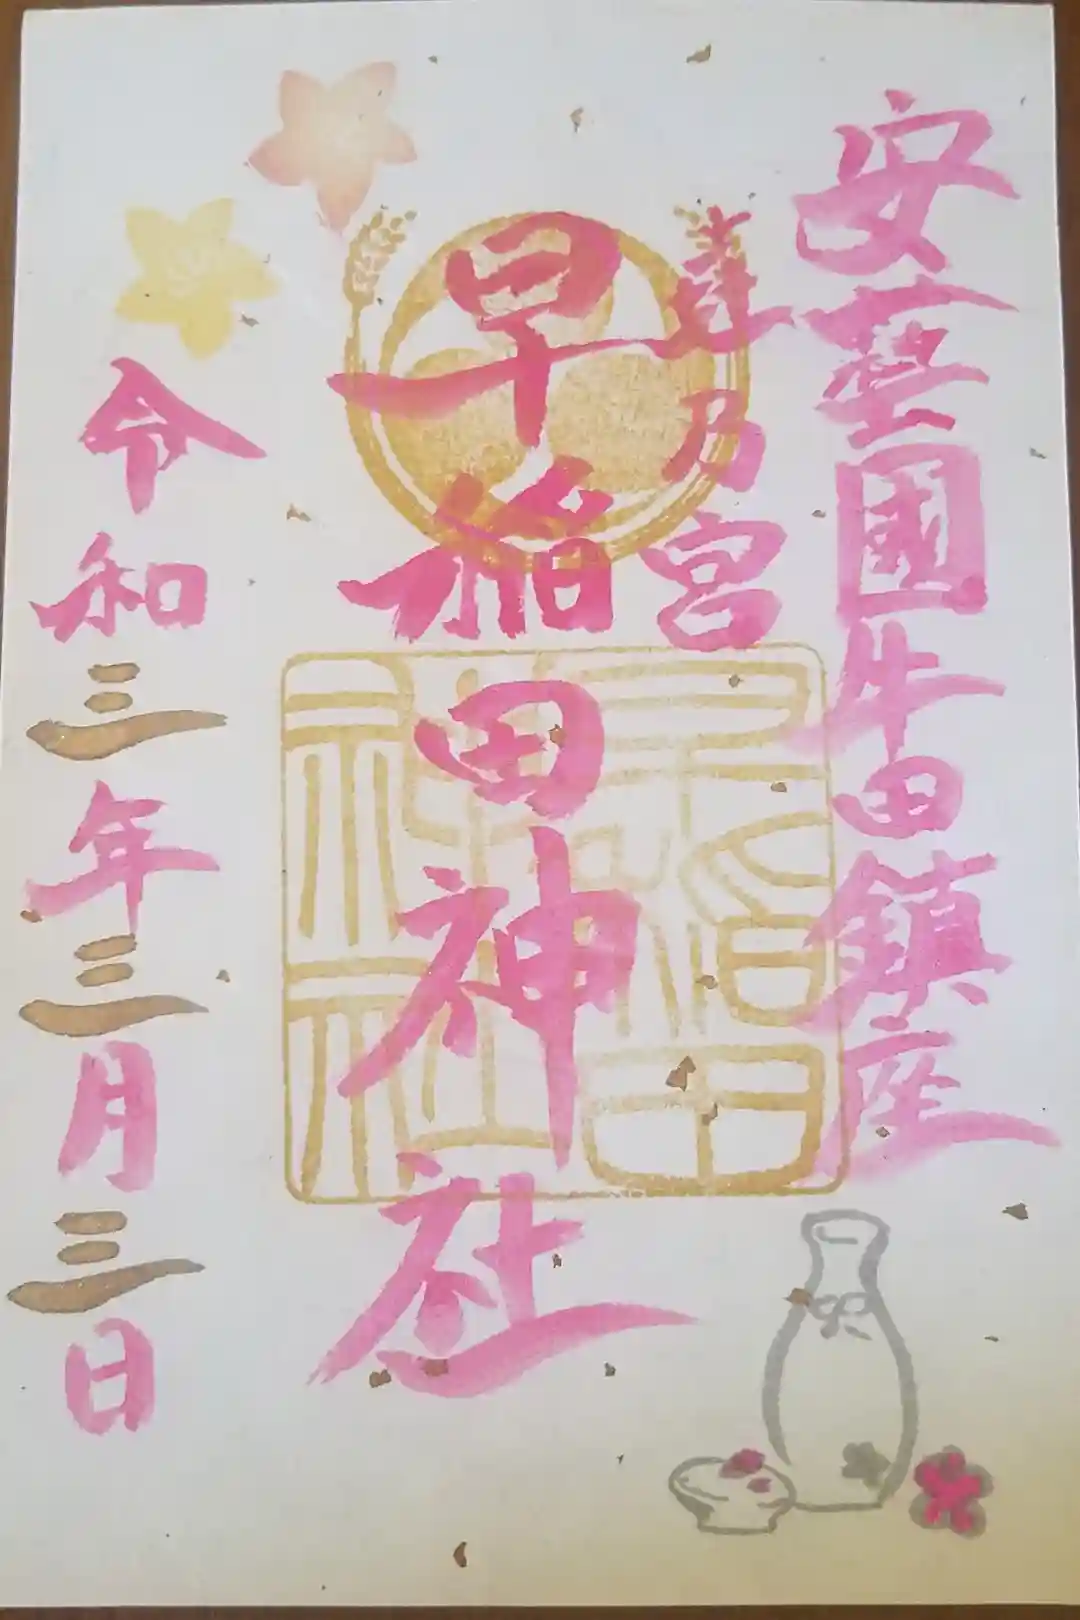 安藝國牛田鎮座
乃宮
早稲田神社
令和三年三月三日